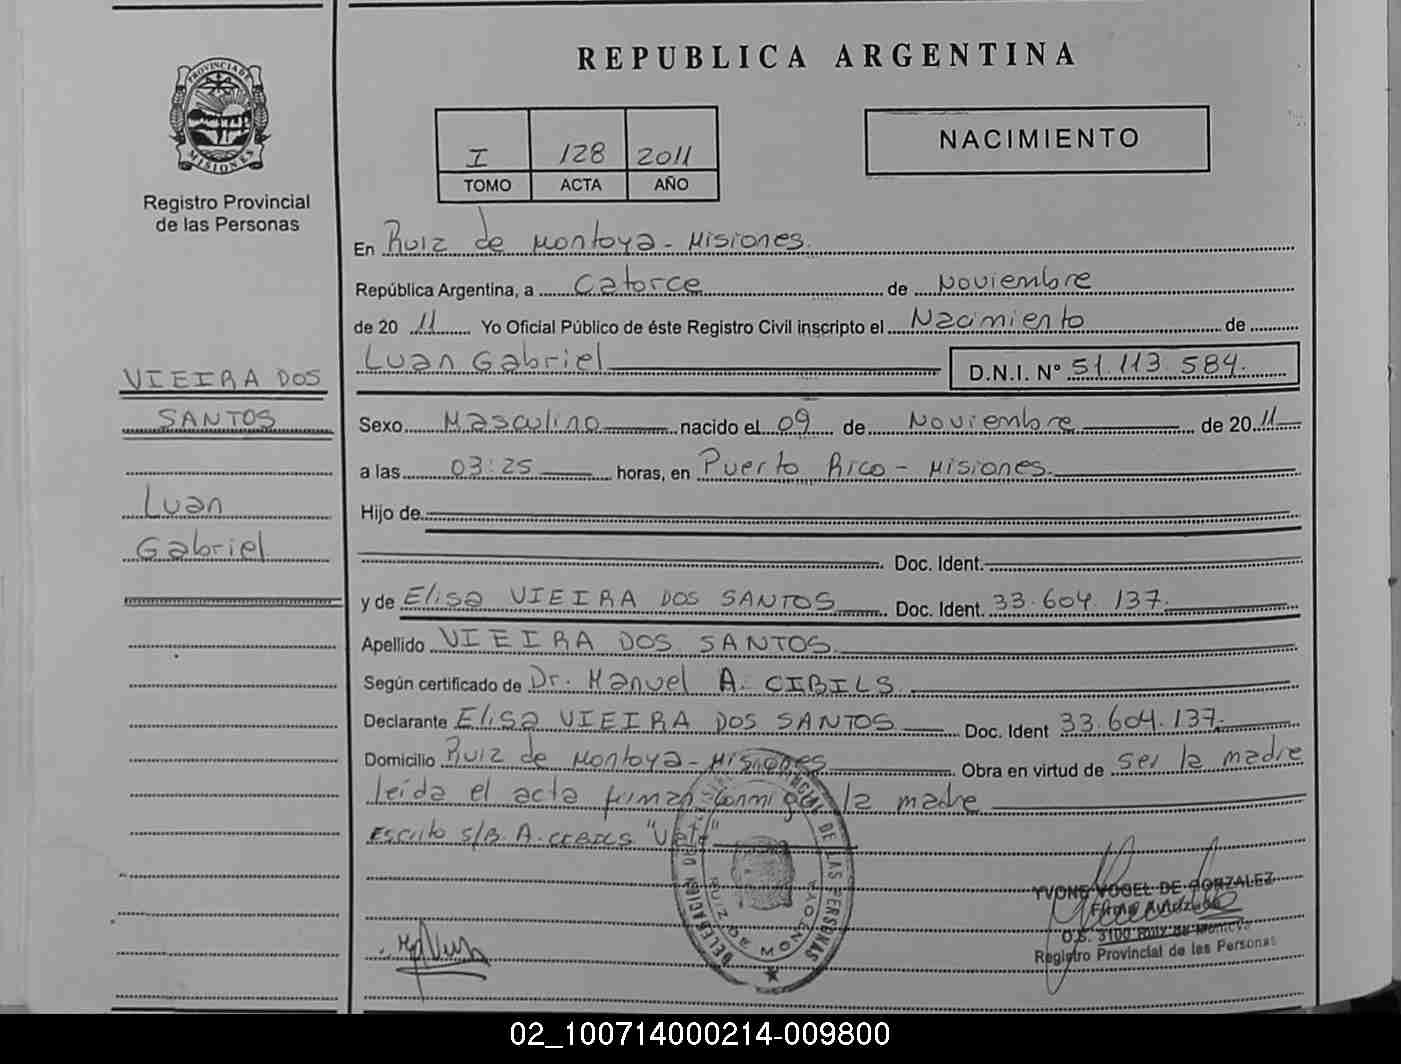 REPUBLICA ARGENTINA
PROVINCIA DE
MISIONES
Registro Provincial
de las Personas
I 128 2011
TOMO ACTA AÑO
NACIMIENTO
En Ruiz de Montoya - Misiones.
República Argentina, a Catorce de Noviembre
de 20 11 Yo Oficial Público de éste Registro Civil inscripto el Nacimiento de
Luan Gabriel D.N.I. N° 51.113.584.
VIEIRA DOS
SANTOS
Luan
Gabriel
Sexo Masculino nacido el 09 de Noviembre de 20 11
a las 03:25 horas, en Puerto Rico - Misiones.
Hijo de
Doc. Ident.
y de Elisa VIEIRA DOS SANTOS Doc. Ident. 33.604.137.
Apellido VIEIRA DOS SANTOS
Según certificado de Dr. Manuel A. CIBILS.
Declarante Elisa VIEIRA DOS SANTOS Doc. Ident 33.604.137.
Domicilio Ruiz de Montoya - Misiones Obra en virtud de ser la madre
leída el acta firman conmigo la madre
Escrito s/B. A. CIBILS "Vale"
DELEGACION DE LAS PERSONAS
RUIZ DE MONTOYA
YVONE VOGEL DE GONZALEZ
Firma Autorizada
O.S. 3100 Ruiz de Montoya
Registro Provincial de las Personas
02_100714000214-009800